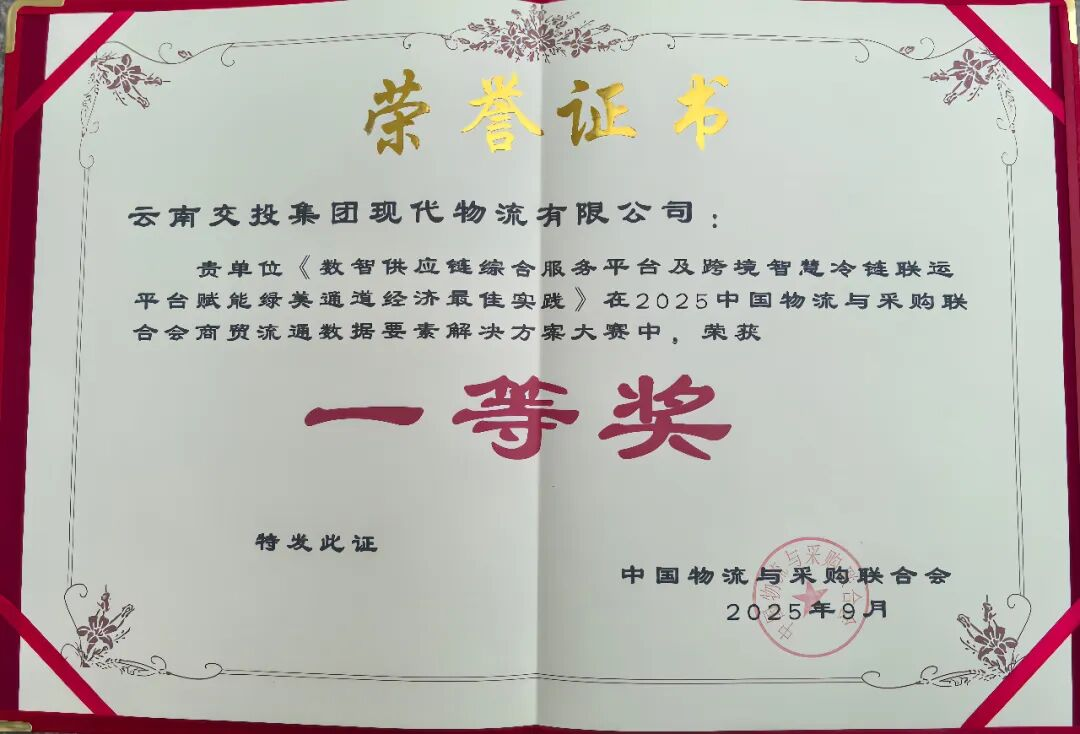 荣誉证书
云南交投集团现代物流有限公司：
贵单位《数智供应链综合服务平台及跨境智慧冷链联运
平台赋能绿美通道经济最佳实践》在2025中国物流与采购联
合会商贸流通数据要素解决方案大赛中，荣获
一等奖
特发此证
中国物流与采购联合会
2025年9月
中国物流与采购联合会